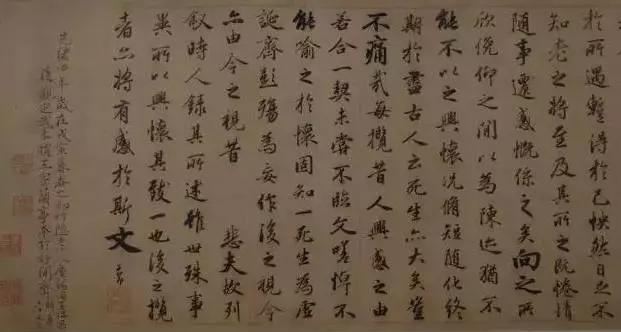 於所遇暫得於己怏然自足不
知老之將至及其所之既惓情
隨事遷感慨係之矣向之所
欣俛仰之間以為陳迹猶不
能不以之興懷況脩短隨化終
期於盡古人云死生亦大矣豈
不痛哉每攬昔人興感之由
若合一契未嘗不臨文嗟悼不
能喻之於懷固知一死生為虛
誕齊彭殤為妄作後之視今
亦由今之視昔 悲夫故列
敘時人錄其所述雖世殊事
異所以興懷其致一也後之攬
者亦將有感於斯文
光緒四年歲在戊寅暮春之初